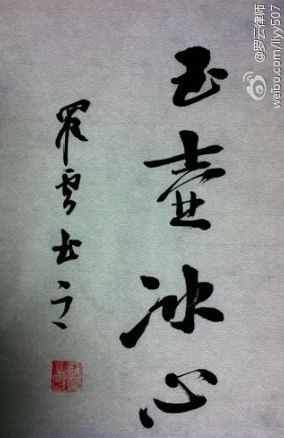 玉壶冰心
罗云书之
@罗云律师
weibo.com/llyy507